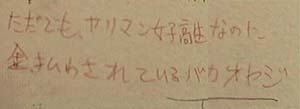 ただでも、ヤリマン女子高生なのに
金払わされているバカオヤジ